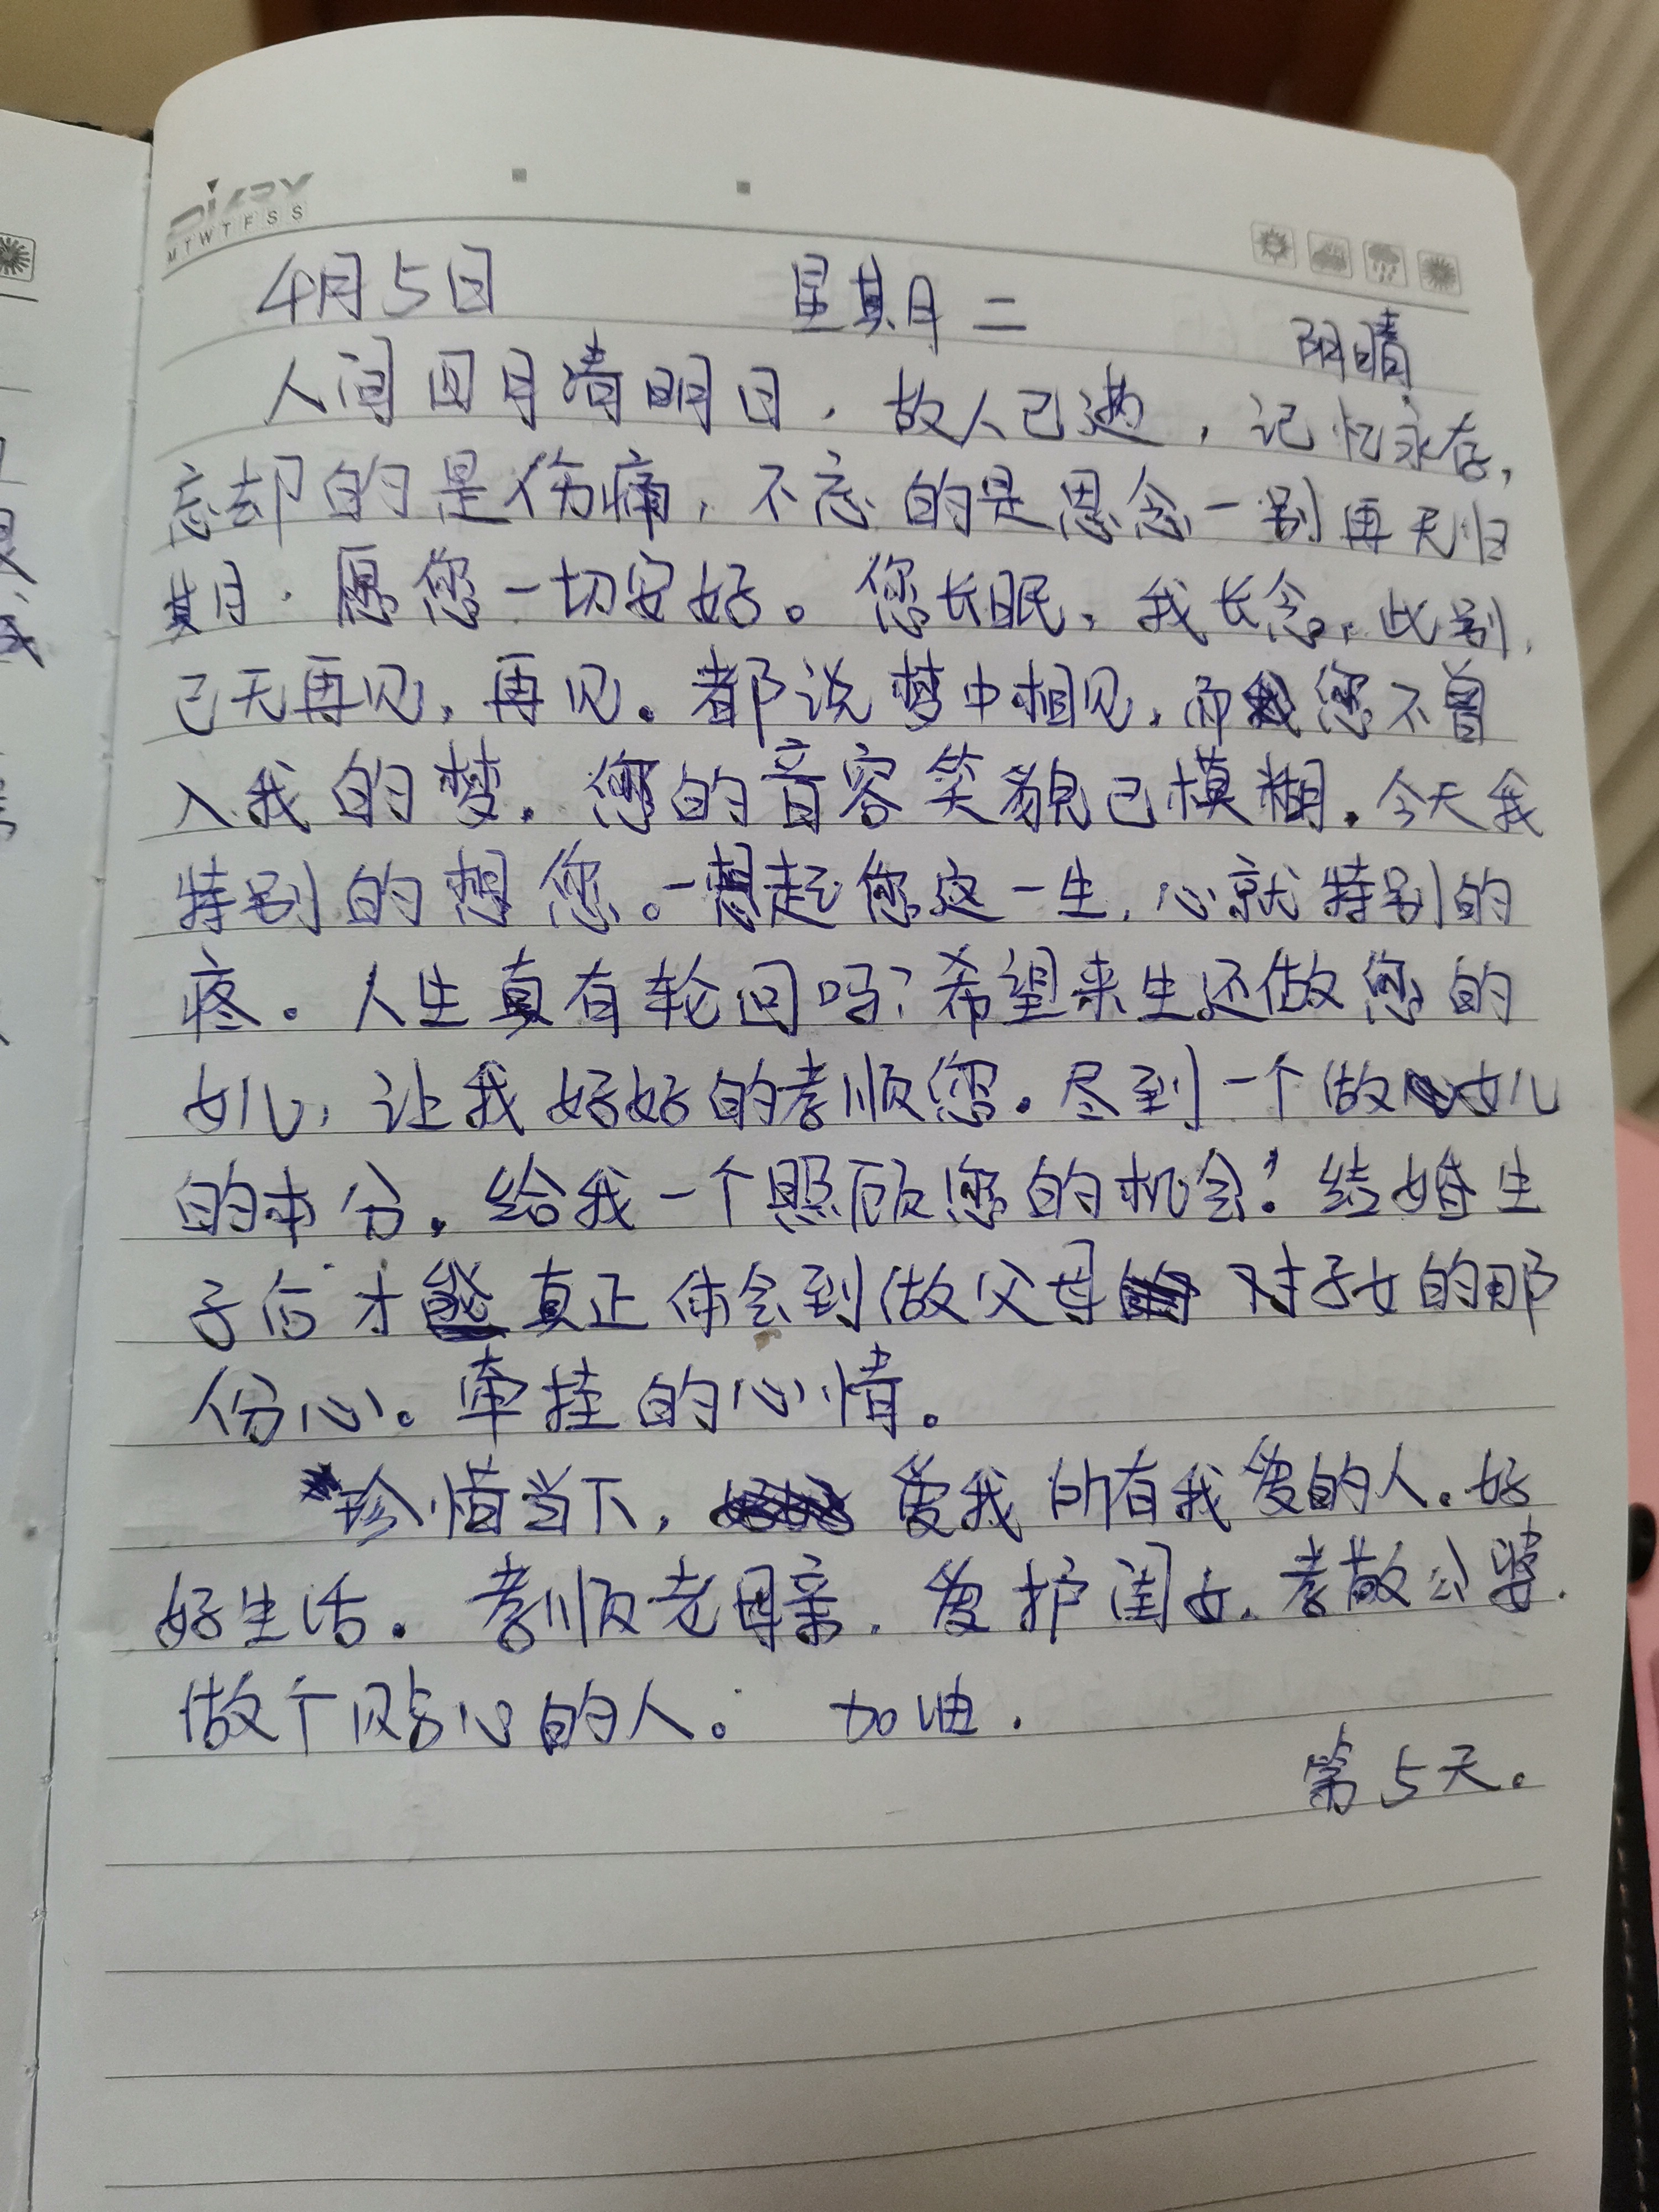 DIARY
MTWTFSS
4月5日 星期二 阴晴
人间四月清明日，故人已逝，记忆永存，
忘却的是伤痛，不忘的是思念一别再无归
期。愿您一切安好。您长眠，我长念，此别，
已无再见，再见。都说梦中相见，而您不曾
入我的梦。您的音容笑貌已模糊。今天我
特别的想您。一想起您这一生，心就特别的
疼。人生真有轮回吗？希望来生还做您的
女儿，让我好好的孝顺您。尽到一个做女儿
的本分。给我一个照顾您的机会！结婚生
子后才真正体会到做父母对子女的那
份心。牵挂的心情。
珍惜当下，爱我所有我爱的人。好
好生活。孝顺老母亲，爱护闺女，孝敬公婆.
做个贴心的人。加油.
第5天。